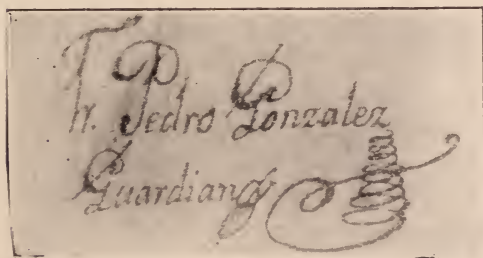 Fr. Pedro Gonzalez
Guardian